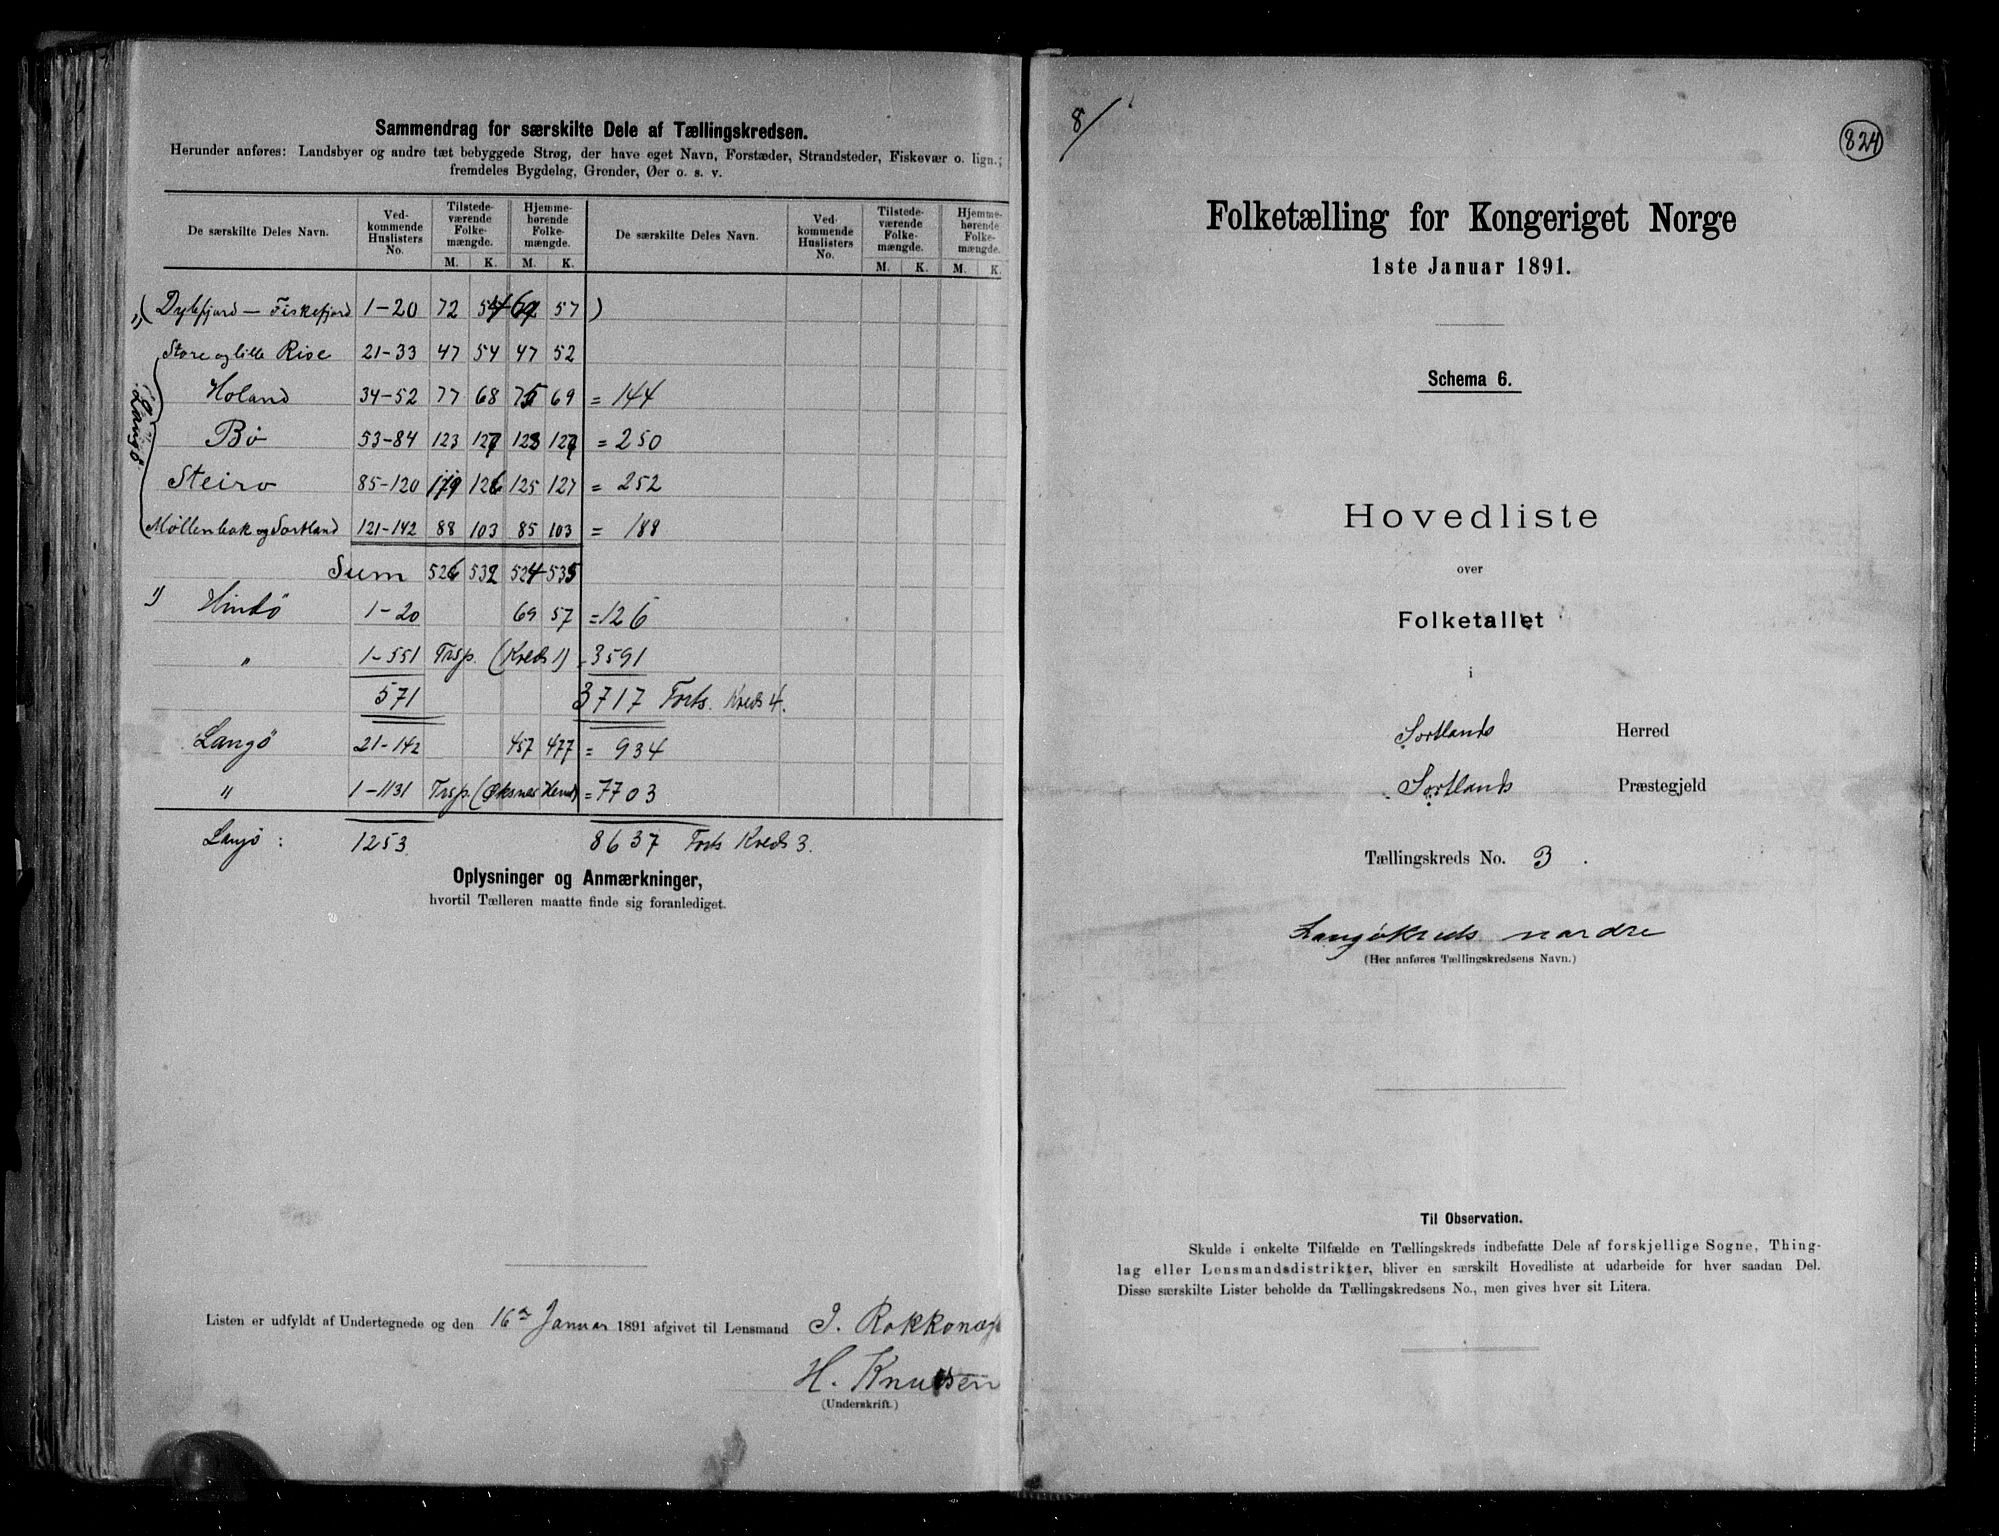 Sammendrag for særskilte Dele af Tællingskredsen.
Herunder anføres: Landsbyer og andre tæt bebyggede Strøg, der have eget Navn, Forstæder, Strandsteder, Fiskevær o. lign.;
fremdeles Bygdelag, Grender, Øer o. s. v.
De særskilte Deles Navn. Ved-kommende Huslisters No. Tilstede-værende Folke-mængde. M. K. Hjemme-hørende Folke-mængde. M. K. De særskilte Deles Navn. Ved-kommende Huslisters No. Tilstede-værende Folke-mængde. M. K. Hjemme-hørende Folke-mængde. M. K.
1) ( Dylefjord — Fiskefjord 1-20 72 54 69 57 )
Store og lille Rise 21-33 47 54 47 52
Holand 34-52 77 68 75 69 = 144
Bø 53-84 123 127 123 127 = 250
Steiro 85-120 119 126 125 127 = 252
Møllenbak og Sortland 121-142 88 103 85 103 = 188
Langø
Sum 526 532 524 535
1) Hindø 1-20 69 57 = 126
" 1-551 Trsp. (Kreds 1) 3591
571 3717 Forts. Kreds 4.
Langø 21-142 457 477 = 934
" 1-1131 Trsp. (Øksnes Herred) = 7703
Langø : 1253 8637 Forts Kreds 3.
Oplysninger og Anmærkninger,
hvortil Tælleren maatte finde sig foranlediget.
Listen er udfyldt af Undertegnede og den 16de Januar 1891 afgivet til Lensmand J. Rokkonæs
H. Knudsen
(Underskrift.)
8/
824
Folketælling for Kongeriget Norge
1ste Januar 1891.
Schema 6.
Hovedliste
over
Folketallet
i
Sortlands Herred
Sortlands Præstegjeld
Tællingskreds No. 3.
Langøkreds nordre
(Her anføres Tællingskredsens Navn.)
Til Observation.
Skulde i enkelte Tilfælde en Tællingskreds indbefatte Dele af forskjellige Sogne, Thing-
lag eller Lensmandsdistrikter, bliver en særskilt Hovedliste at udarbeide for hver saadan Del.
Disse særskilte Lister beholde da Tællingskredsens No., men gives hver sit Litera.